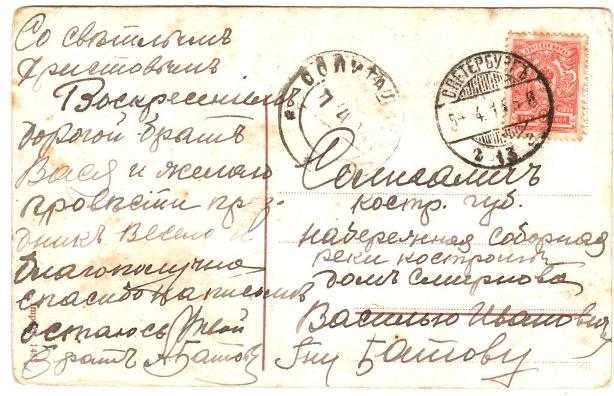 Со свѣтлымъ
Христовымъ
Воскресеніемъ
дорогой братъ
Вася и желаю
провѣсти праз-
дникъ Весело и
благополучно
спасибо на письмѣ
остаюсь твой
братъ А. Батовъ
СОЛИГАЛ
С.ПЕТЕРБУРГЪ
5 4 13
Солигаличъ
костр. губ.
набережная соборная
реки костромы
домъ смирнова
Василью Ивановичу
Гну Батову